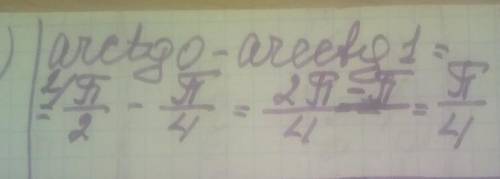 ) arcctg 0 - arcctg 1 =
= ²⁄π/2 - π/4 = (2π - π)/4 = π/4